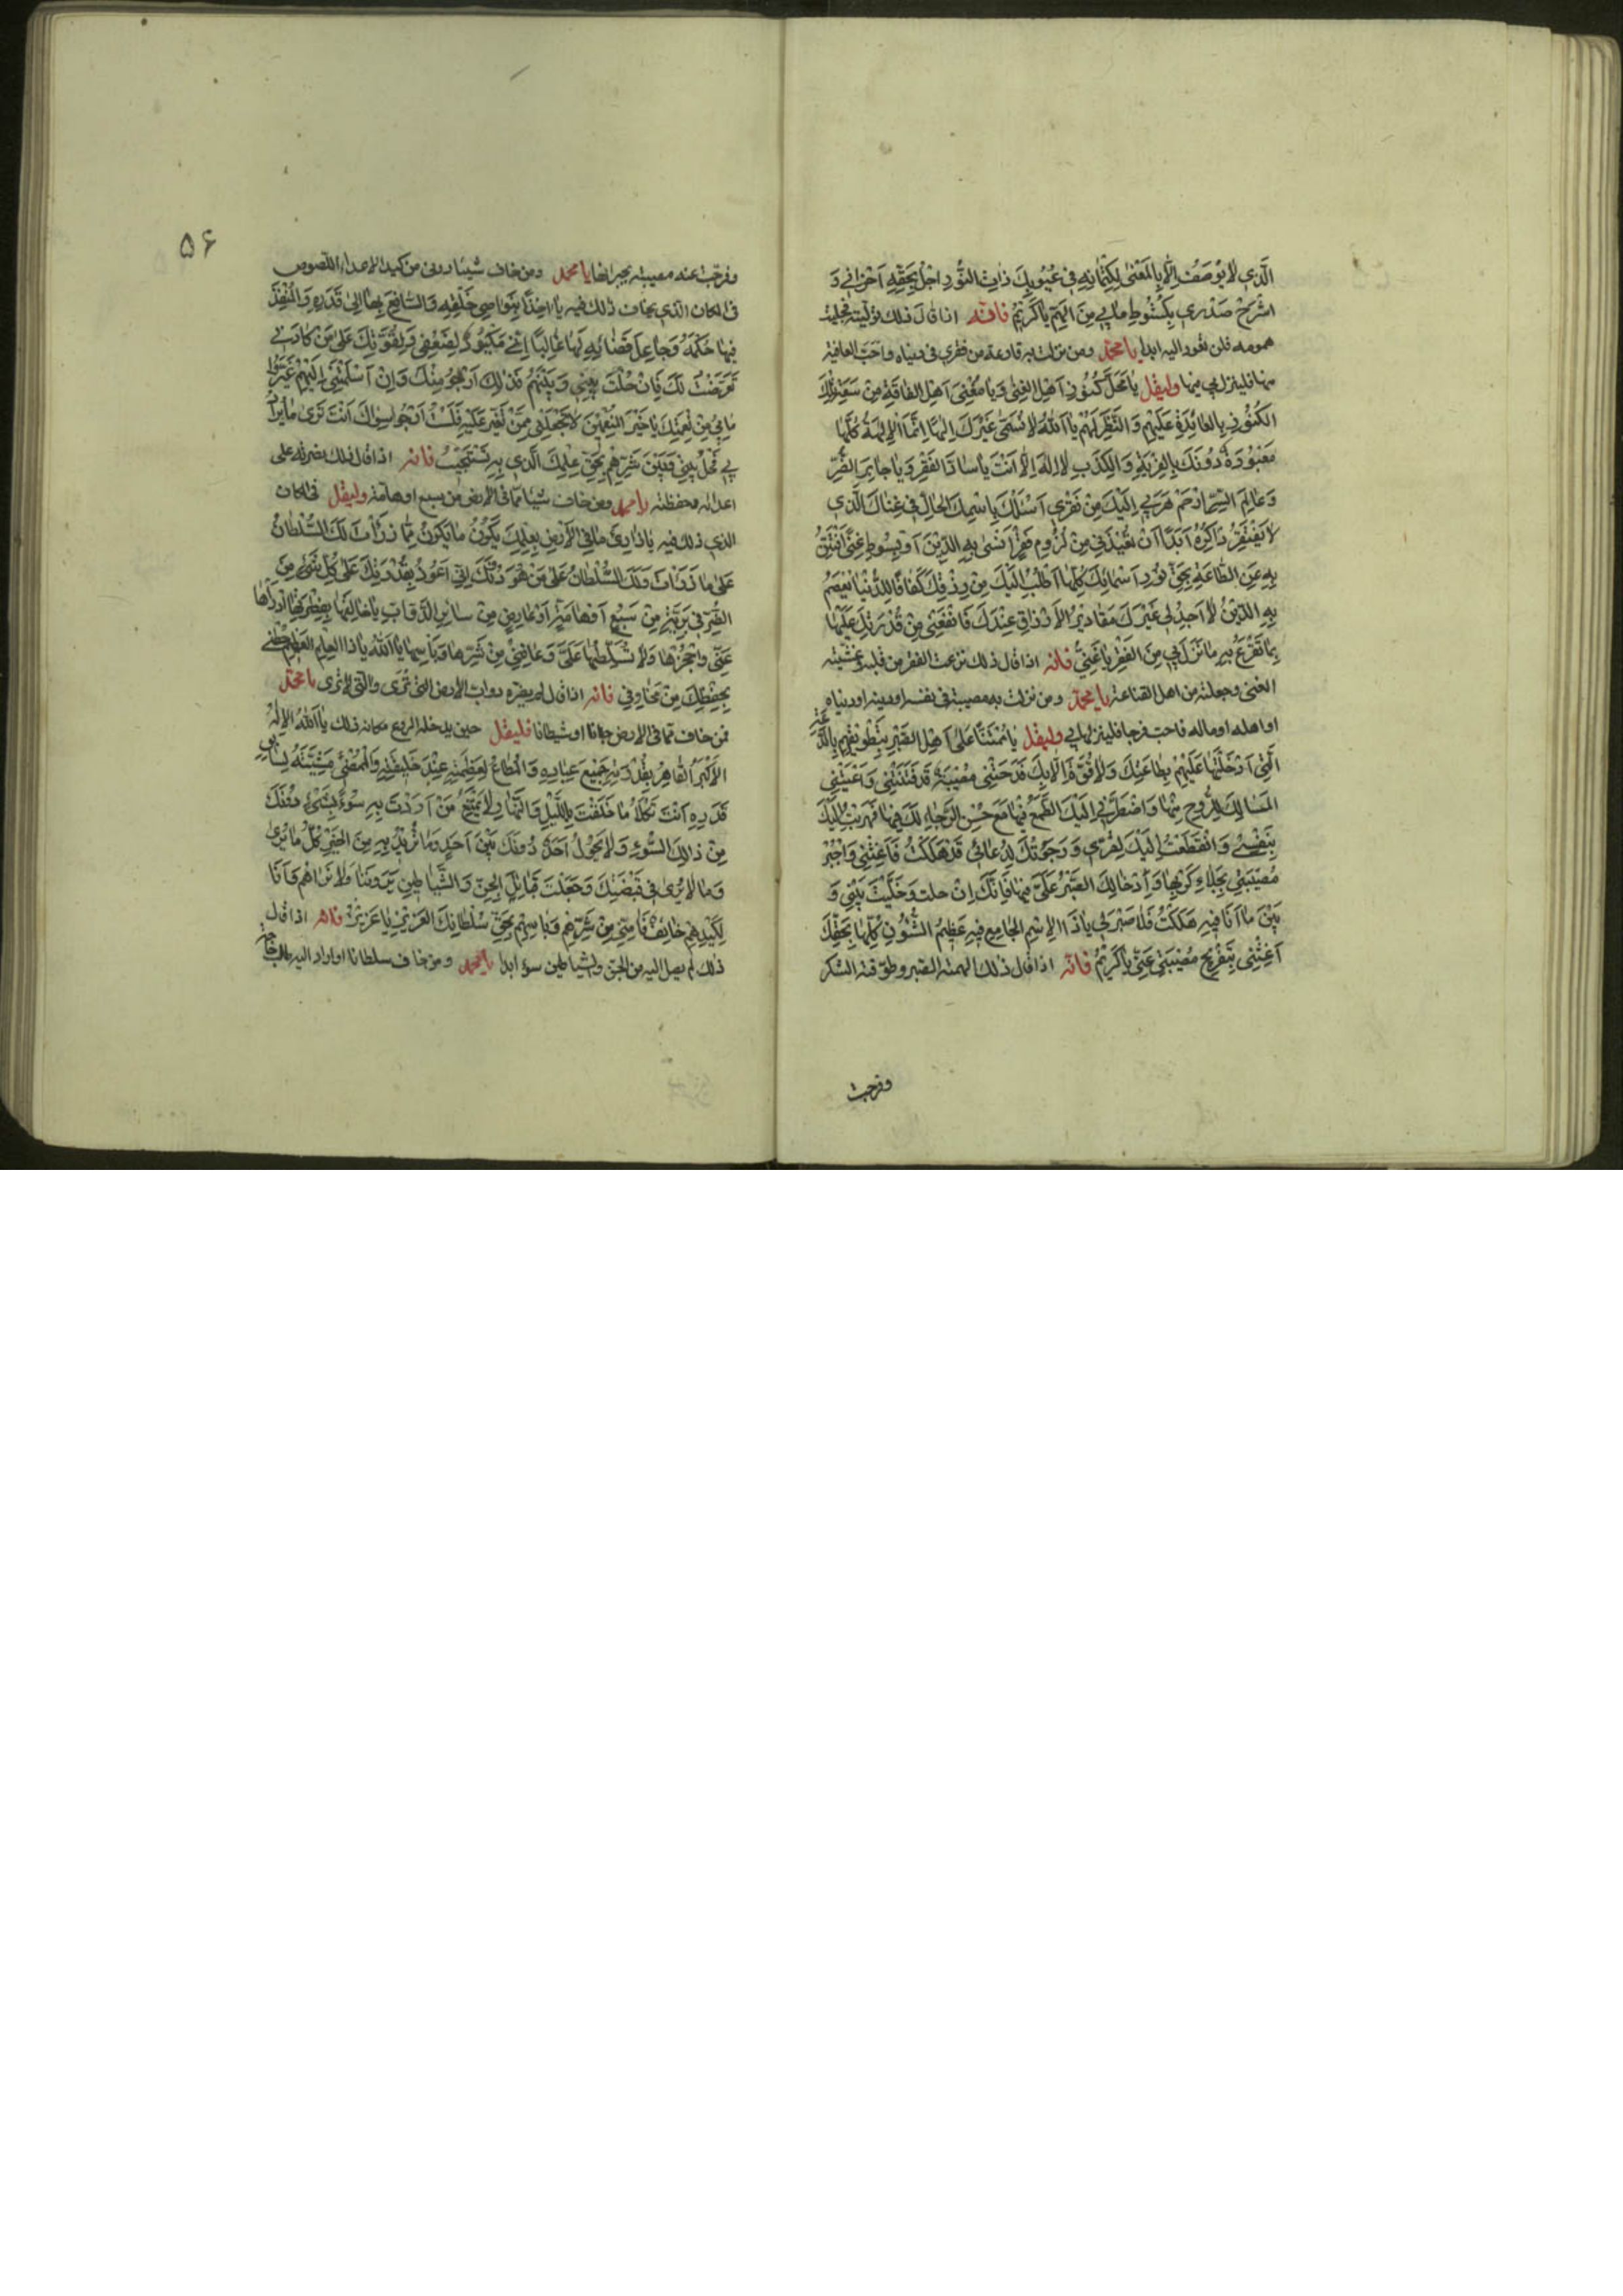 الَّذِي لَا يُوصَفُ إِلَّا بِالْمَعْنَى لِكِتْمَانِهِ فِي غُيُوبِكَ ذَاتِ النُّورِ اجْلُ بِحَقِّهِ أَحْزَانِي وَ
اشْرَحْ صَدْرِي بِكُشُوطِ مَا بِي مِنَ الْهَمِّ يَا كَرِيمُ فانه اذا قال ذلك توليته فجليت
همومه فلن تعود اليه ابدا يا محمد ومن نزلت به قارعة من فقر في دنياه واحب العافية
منها فلينزل بي فيها وليقل يَا مَحَلَّ كُنُوزِ أَهْلِ الْغِنَى وَ يَا مُغْنِيَ أَهْلِ الْفَاقَةِ مِنْ سَعَةِ تِلْكَ
الْكُنُوزِ بِالْعَائِدَةِ عَلَيْهِمْ وَ النَّظَرِ لَهُمْ يَا اللهُ لَا يُسَمَّى غَيْرُكَ إِلَهًا إِنَّمَا الْآلِهَةُ كُلُّهَا
مَعْبُودَةٌ دُونَكَ بِالْفِرْيَةِ وَ الْكَذِبِ لَا إِلَهَ إِلَّا أَنْتَ يَا سَادَّ الْفَقْرِ وَ يَا جَابِرَ الضُّرِّ
وَ عَالِمَ السِّرِّ ارْحَمْ هَرَبِي إِلَيْكَ مِنْ فَقْرِي أَسْئَلُكَ بِاسْمِكَ الْحَالِّ فِي غِنَاكَ الَّذِي
لَا يَفْتَقِرُ ذَاكِرُهُ أَبَدًا أَنْ تُعِيذَنِي مِنْ لُزُومِ فَقْرٍ أَنْسَى بِهِ الدِّينَ أَوْ بِسُوطِ غِنًى أَفْتَتِنُ
بِهِ عَنِ الطَّاعَةِ بِحَقِّ نُورِ أَسْمَائِكَ كُلِّهَا أَطْلُبُ إِلَيْكَ مِنْ رِزْقِكَ كَفَافًا لِلدُّنْيَا تَعْصِمُ
بِهِ الدِّينَ لَا أَجِدُ لِي غَيْرَكَ مَقَادِيرُ الْأَرْزَاقِ عِنْدَكَ فَانْفَعْنِي مِنْ قُدْرَتِكَ عَلَيْهَا
بِمَا تَنْزِعُ بِهِ مَا نَزَلَ بِي مِنَ الْفَقْرِ يَا غَنِيُّ فانه اذا قال ذلك نزعت الفقر من قلبه وغشيته
الغنى وجعلته من اهل القناعة يا محمد ومن نزلت به مصيبة في نفسه او دينه او دنياه
او اهله او ماله فاحب فرجا فلينزلها بي وليقل يَا مُمْتَنًّا عَلَى أَهْلِ الصَّبْرِ بِتَطْوِيقِهِمْ بِالدَّعَةِ
الَّتِي أَدْخَلْتَهَا عَلَيْهِمْ بِطَاعَتِكَ وَ لَا قُوَّةَ إِلَّا بِكَ فَدَحَتْنِي مُصِيبَةٌ قَدْ فَتَنَتْنِي وَ أَعْيَتْنِي
الْمَسَالِكُ لِلرَّوْحِ مِنْهَا وَ اضْطَرَّنِي إِلَيْكَ الطَّمَعُ فِيهَا مَعَ حُسْنِ الرَّجَاءِ لَكَ فِيهَا فَهَرَبْتُ إِلَيْكَ
بِنَفْسِي وَ انْقَطَعْتُ إِلَيْكَ لِضُرِّي وَ رَجَوْتُكَ لِدُعَائِي قَدْ هَلَكْتُ فَأَغِثْنِي وَ اجْبُرْ
مُصِيبَتِي بِجَلَاءِ كَرْبِهَا وَ إِدْخَالِكَ الصَّبْرَ عَلَيَّ فِيهَا فَإِنَّكَ إِنْ حلت وَ خَلَّيْتَ بَيْنِي وَ
بَيْنَ مَا أَنَا فِيهِ هَلَكْتُ فَلَا صَبْرَ لِي يَا ذَا الِاسْمِ الْجَامِعِ فِيهِ عَظِيمُ الشُّئُونِ كُلِّهَا بِحَقِّكَ
أَغِثْنِي بِتَفْرِيجِ مُصِيبَتِي عَنِّي يَا كَرِيمُ فانه اذا قال ذلك الهمته الصبر وطوقته الشكر
وفرجت
۵۶
وفرجت عنه مصيبته بجبرانها يا محمد ومن خاف شيئا دوني من كيد الاعداء واللصوص
في المكان الذي يخاف ذلك فيه يَا آخِذًا بِنَوَاصِي خَلْقِهِ وَ السَّافِعَ بِهَا إِلَى قَدَرِهِ وَ الْمُنْفِذَ
فِيهَا حُكْمَهُ وَ جَاعِلَ قَضَائِهِ لَهَا غَالِبًا إِنِّي مَكِيدٌ لِضَعْفِي وَ لِقُوَّتِكَ عَلَى مَنْ كَادَنِي
تَعَرَّضْتُ لَكَ فَإِنْ حُلْتَ بَيْنِي وَ بَيْنَهُمْ فَذَلِكَ أَرْجُو مِنْكَ وَ إِنْ أَسْلَمْتَنِي إِلَيْهِمْ غَيَّرُوا
مَا بِي مِنْ نِعَمِكَ يَا خَيْرَ الْمُنْعِمِينَ لَا تَجْعَلْنِي مِمَّنْ تُغَيِّرُ عَلَيْهِ فَلَسْتُ أَرْجُو لِسِوَاكَ أَنْتَ تَرَى مَا يُرَادُ
بِي فَحُلْ بَيْنِي وَ بَيْنَ شَرِّهِمْ بِحَقِّ عِلْمِكَ الَّذِي بِهِ تَسْتَجِيبُ فانه اذا قال ذلك نصرته على
اعدائه وحفظته يا محمد ومن خاف شيئا مما في الارض من سبع او هامة وليقل في المكان
الذي ذلك فيه يَا ذَارِئَ مَا فِي الْأَرْضِ بِعِلْمِكَ يَكُونُ مَا يَكُونُ مِمَّا ذَرَأْتَ لَكَ السُّلْطَانُ
عَلَى مَا ذَرَأْتَ وَلَكَ السُّلْطَانُ عَلَى مَنْ هُوَ دُونَكَ إِنِّي أَعُوذُ بِقُدْرَتِكَ عَلَى كُلِّ شَيْءٍ مِنَ
الضُّرِّ فِي بَدَنِي مِنْ سَبُعٍ أَوْ هَامَّةٍ أَوْ عَارِضٍ مِنْ سَائِرِ الدَّوَابِّ يَا خَالِقَهَا بِفِطْرَتِهَا ادْرَأْهَا
عَنِّي وَ احْجُزْهَا وَ لَا تُسَلِّطْهَا عَلَيَّ وَ عَافِنِي مِنْ شَرِّهَا وَ بَأْسِهَا يَا اللهُ يَا ذَا الْعِلْمِ الْعَظِيمِ حُطْنِي
بِحِفْظِكَ مِنْ مَخَاوِفِي فانه اذا قال لم يضره دواب الارض التي تُرَى والتي لا ترى يا محمد
فمن خاف مما في الارض جانا او شيطانا فليقل حين يدخله الروع مكانه ذلك يَا اللهُ الْإِلَهُ
الْأَكْبَرُ الْقَاهِرُ بِقُدْرَتِهِ جَمِيعَ عِبَادِهِ وَ الْمُطَاعُ لِعَظَمَتِهِ عِنْدَ خَلِيقَتِهِ وَ الْمُمْضِي مَشِيَّتَهُ لِسَابِقِ
قَدَرِهِ أَنْتَ تَكْلَأُ مَا خَلَقْتَ بِاللَّيْلِ وَ النَّهَارِ وَ لَا يَمْتَنِعُ مَنْ أَرَدْتَ بِهِ سُوءًا بِشَيْءٍ دُونَكَ
مِنْ ذَلِكَ السُّوءِ وَ لَا يَحُولُ أَحَدٌ دُونَكَ بَيْنَ أَحَدٍ وَ مَا تُرِيدُ بِهِ مِنَ الْخَيْرِ كُلُّ مَا يُرَى
وَ مَا لَا يُرَى فِي قَبْضَتِكَ وَ جَعَلْتَ قَبَائِلَ الْجِنِّ وَ الشَّيَاطِينِ يَرَوْنَنَا وَ لَا نَرَاهُمْ وَ أَنَا
لِكَيْدِهِمْ خَائِفٌ فَآمِنِّي مِنْ شَرِّهِمْ وَ بَأْسِهِمْ بِحَقِّ سُلْطَانِكَ الْعَزِيزِ يَا عَزِيزُ فانه اذا قال
ذلك لم يصل اليه من الجن والشياطين سوء ابدا يا محمد ومن خاف سلطانا او اراد اليه طلب حاجة